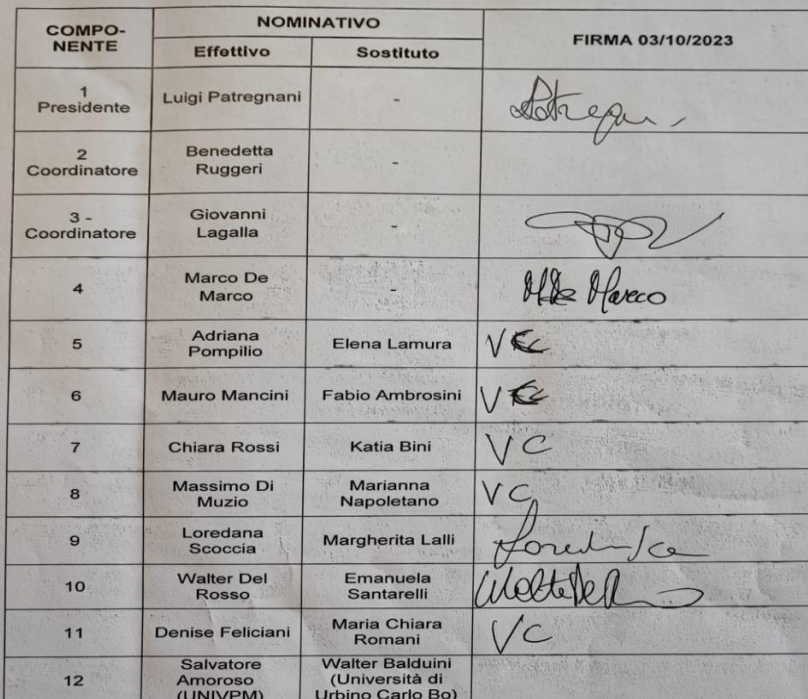 COMPO-
NENTE
NOMINATIVO
Effettivo
Sostituto
FIRMA 03/10/2023
1
Presidente
Luigi Patregnani
-
2
Coordinatore
Benedetta
Ruggeri
-
3 -
Coordinatore
Giovanni
Lagalla
-
4
Marco De
Marco
-
M De Marco
5
Adriana
Pompilio
Elena Lamura
V C
6
Mauro Mancini
Fabio Ambrosini
V C
7
Chiara Rossi
Katia Bini
V C
8
Massimo Di
Muzio
Marianna
Napoletano
V C
9
Loredana
Scoccia
Margherita Lalli
10
Walter Del
Rosso
Emanuela
Santarelli
11
Denise Feliciani
Maria Chiara
Romani
V C
12
Salvatore
Amoroso
(UNIVPM)
Walter Balduini
(Università di
Urbino Carlo Bo)